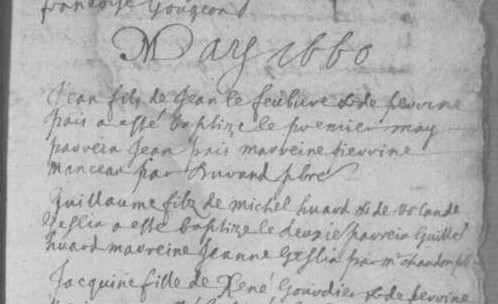 françoise Gougeon
May 1660
Jean filz de Jean le feubure & de perrine
pais a esté baptize le premier may
parrein Jean pais marreine perrine
manceau par Durand pbre
Guillaume filz de michel huard & de
Geslin a esté baptize le parrein Guille
huard marreine Jeanne Geslin par mr chaudon
Jacquine fille de René Gourdier & de perrine